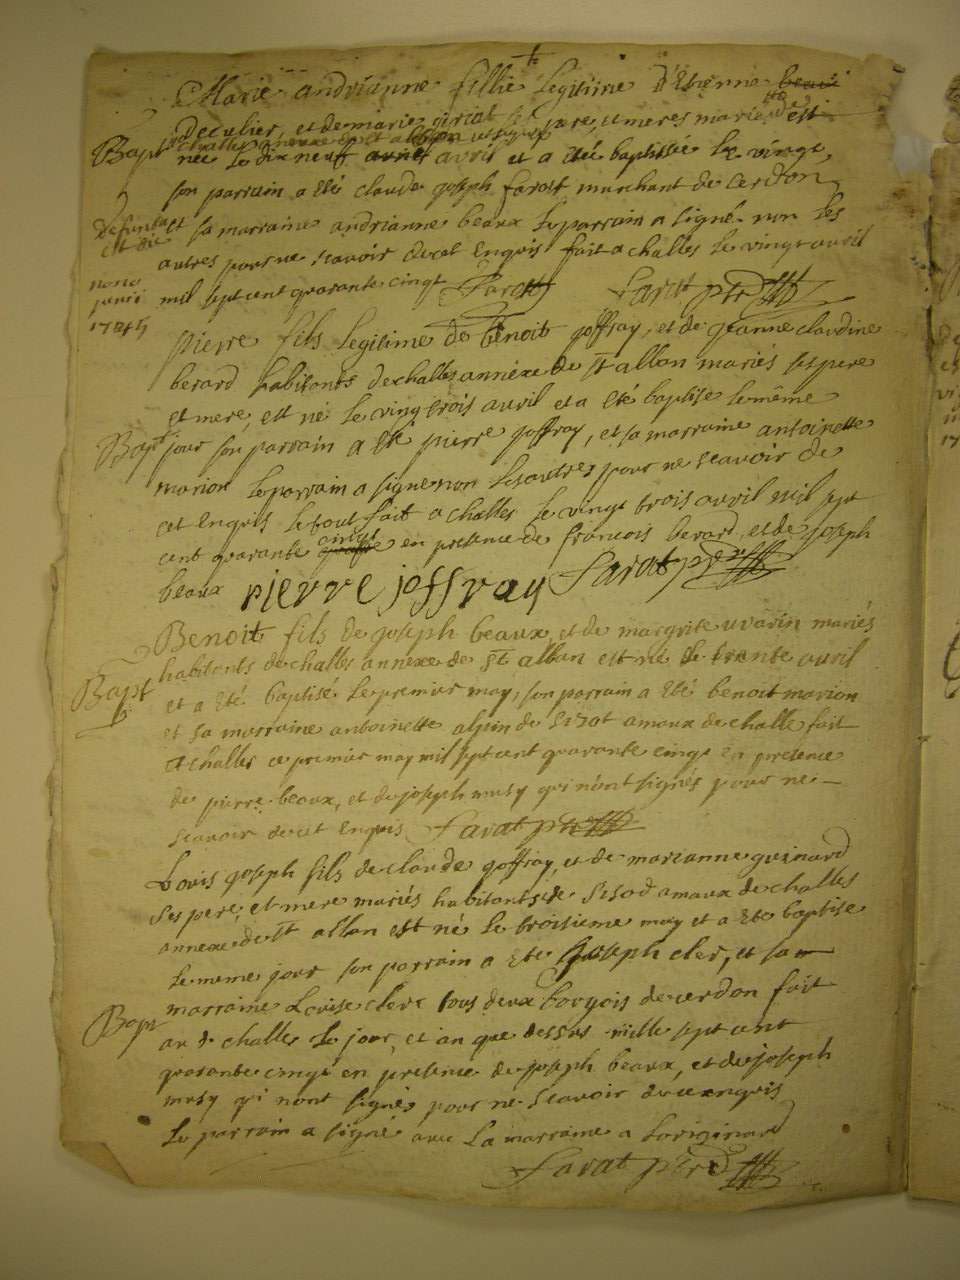 Marie andrianne fillie legitime d'Etienne
deculier, et de marie giriat ses pere, et meres mariés est
Bapt
née le dix neuf avril et a été baptisée le vingt,
son parrain a eté claude joseph farat marchant de cerdon
et sa marraine andrianne beaux le parrain a signé non les
autres pour ne scavoir de cet enquis fait a challes le vingt avril
mil sept cent quarante cinqt Sarat Sarat ptre
1745
pierre fils legitime de benoit joffray, et de jeanne claudine
berard habitants de challes annéxe de st allban mariés ses pere
et mere, est né le vingt trois avril et a eté baptise le même
Bapt
jour son parrain a eté pierre joffray, et sa marraine antoinette
marion le parrain a signe non les autres pour ne scavoir de
cet enquis le tout fait a challes le vingt trois avril mil sept
cent quarante cinqt en presence de francois berard, et de joseph
beaux pierre joffray Sarat ptre
Benoit fils de joseph beaux, et de margrite uvarin mariés
habitants de challes annexe de st alban est né le trente avril
Bapt
et a eté baptisé le premier may, son parrain a eté benoit marion
et sa marraine antoinette alpin de amaux de challe fait
a challes ce premier may mil sept cent quarante cinqt en presence
de pierre beaux, et de joseph musy qui n'ont signés pour ne
scavoir de cet enquis Sarat ptre
Louis joseph fils de claude joffray, et de marianne guinard
ses pere, et mere mariés habitants de amaux de challes
annexe de st alban est né le troisieme may et a ete baptise
le meme jour son parrain a ete joseph cler, et sa
marraine Louise clerc tous deux borgois de cerdon fait
Bapt
au d challes le jour, et an que dessus mille sept cent
quarante cinqt en presence de joseph beaux, et de joseph
musy qi nont signés pour ne scavoir de ce enquis
le parrain a signé avec la marraine a loriginard
Sarat ptre